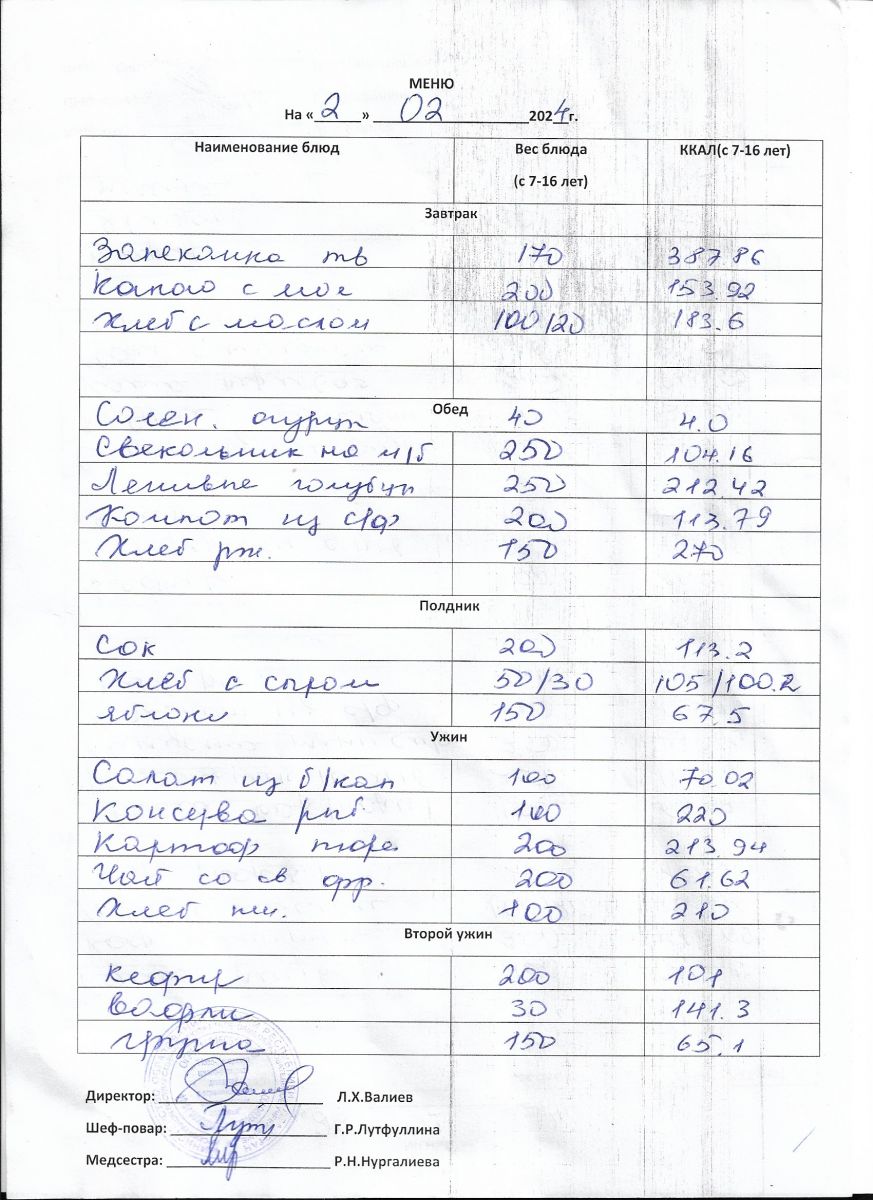 МЕНЮ
На «2» 02 2024г.
Наименование блюд Вес блюда (с 7-16 лет) ККАЛ(с 7-16 лет)
Завтрак
Запеканка тв 170 387.86
Какао с мол 200 153.92
Хлеб с маслом 100/20 183.6
Обед
Солен. огурец 40 4.0
Свекольник на м/б 250 104.16
Ленивые голубцы 250 212.42
Компот из с/ф 200 113.79
Хлеб рж. 150 270
Полдник
Сок 200 113.2
Хлеб с сыром 50/30 105/100.2
яблоки 150 67.5
Ужин
Салат из б/кап 100 70.02
Консерва рыб. 100 220
Картоф пюре 200 213.94
Чай со св фр. 200 61.62
Хлеб пш. 100 210
Второй ужин
кефир 200 101
вафли 30 141.3
груша 150 65.1
Директор: Л.Х.Валиев
Шеф-повар: Г.Р.Лутфуллина
Медсестра: Р.Н.Нургалиева